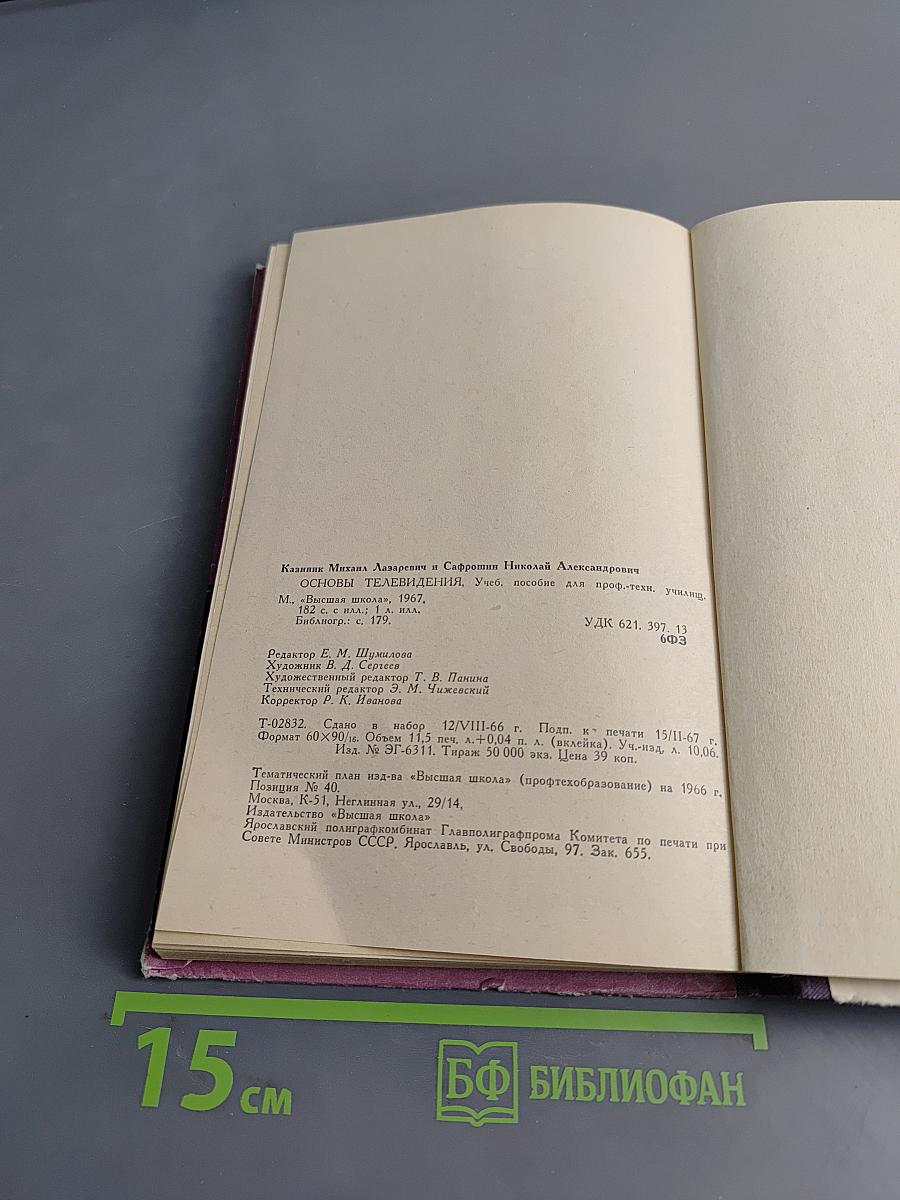 Казиник Михаил Лазаревич и Сафрошин Николай Александрович
ОСНОВЫ ТЕЛЕВИДЕНИЯ, Учеб. пособие для проф.-техн. училищ.
М., «Высшая школа», 1967.
182 с. с илл.; 1 л. илл.
Библиогр.: с. 179.
УДК 621. 397. 13
6Ф3
Редактор Е. М. Шумилова
Художник В. Д. Сергеев
Художественный редактор Т. В. Панина
Технический редактор Э. М. Чижевский
Корректор Р. К. Иванова
Т-02832. Сдано в набор 12/VIII-66 г. Подп. к печати 15/II-67 г.
Формат 60×90/16. Объем 11,5 печ. л.+0,04 п. л. (вклейка). Уч.-изд. л. 10,06.
Изд. № ЭГ-6311. Тираж 50 000 экз. Цена 39 коп.
Тематический план изд-ва «Высшая школа» (профтехобразование) на 1966 г.
Позиция № 40.
Москва, К-51, Неглинная ул., 29/14,
Издательство «Высшая школа»
Ярославский полиграфкомбинат Главполиграфпрома Комитета по печати при
Совете Министров СССР. Ярославль, ул. Свободы, 97. Зак. 655.
15 см
БФ БИБЛИОФАН